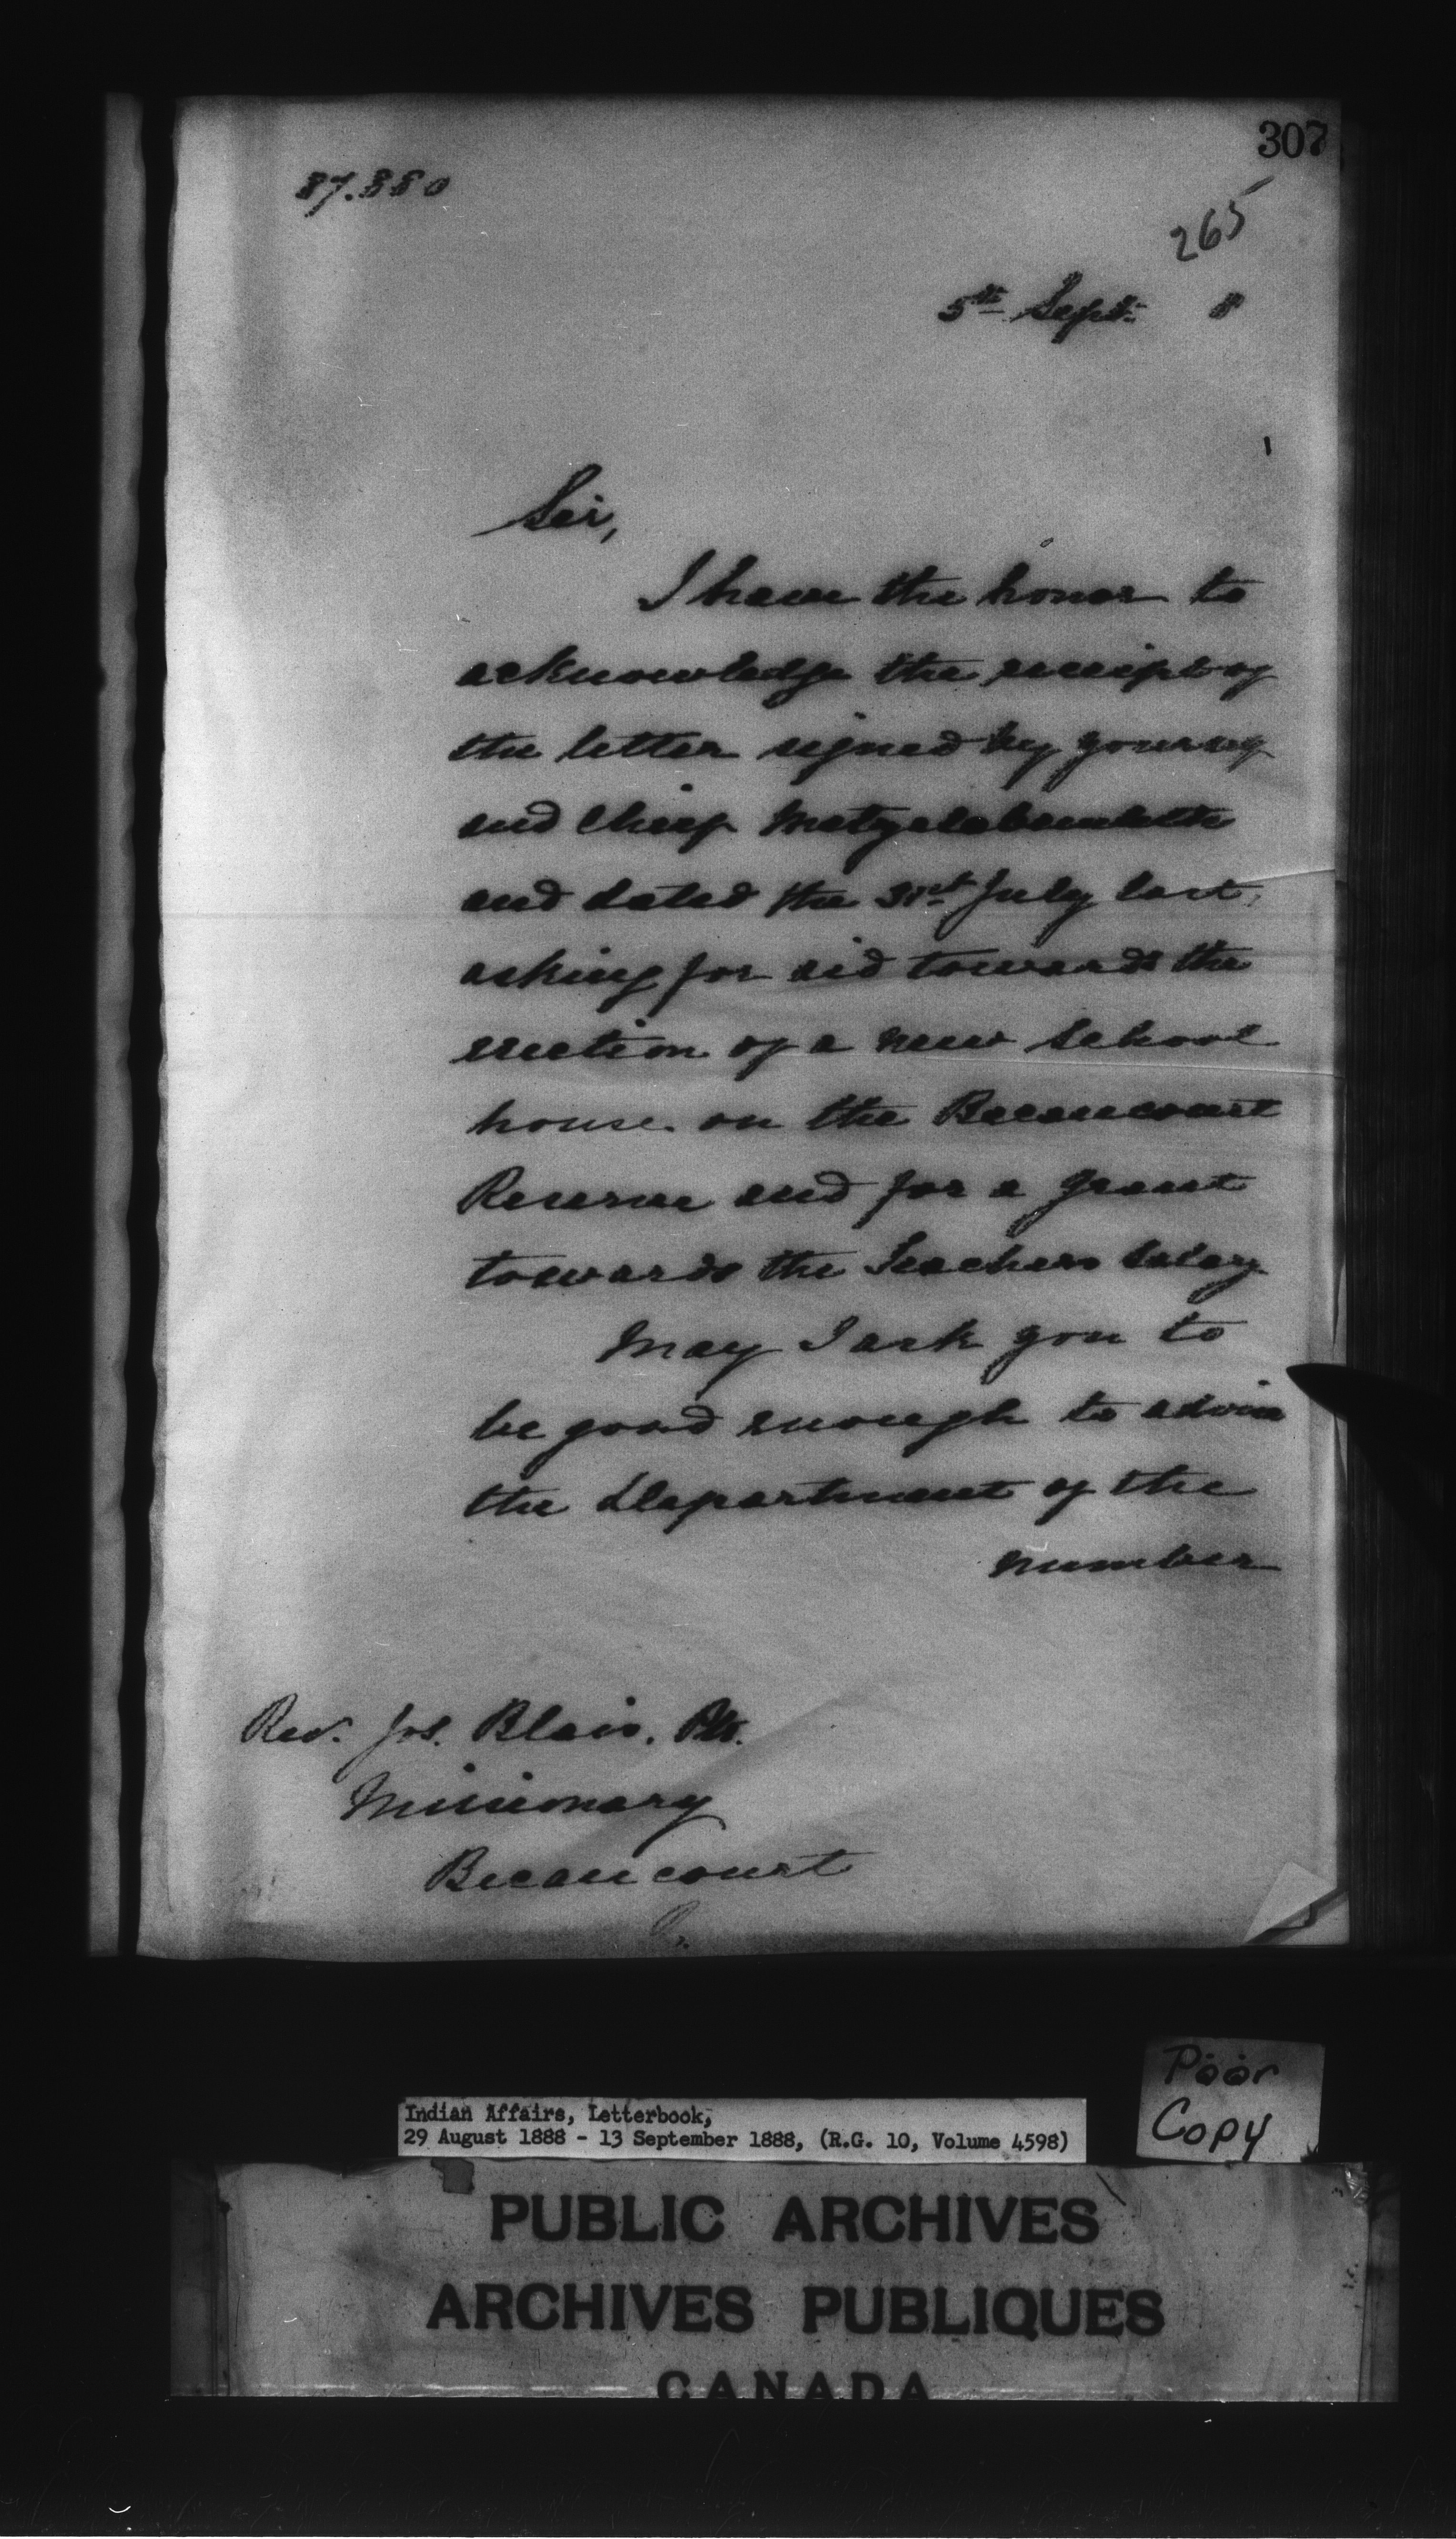 307
87.880
265
5th Sept. 8
Sir,
I have the honor to
acknowledge the receipt of
the letter signed by yourself
and Chief
and dated the 31st July last,
asking for aid towards the
erection of a new School
house on the Becancourt
Reserve and for a grant
towards the Teachers Salary
May I ask you to
be good enough to advise
the Department of the
number
Rev. Jos. Blais, Ptr.
Missionary
Becancourt
Poor
Copy
Indian Affairs, Letterbook,
29 August 1888 - 13 September 1888, (R.G. 10, Volume 4598)
PUBLIC ARCHIVES
ARCHIVES PUBLIQUES
CANADA